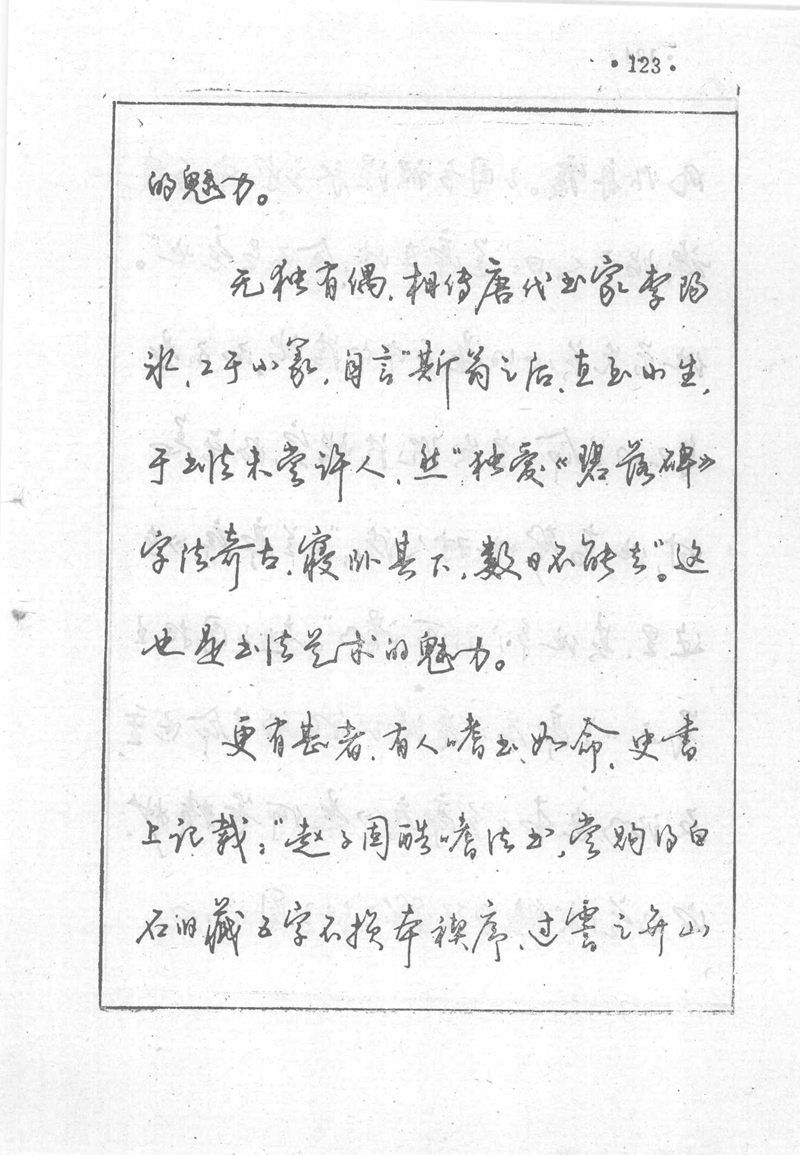 ·123·
的魅力。
无独有偶，相传唐代书家李阳
冰，工于小篆，自言“斯翁之后，直至小生，
于书法未尝许人，然“独爱《碧落碑》
字法奇古，寝卧其下，数日不能去”。这
也是书法艺术的魅力。
更有甚者，有人嗜书如命，史书
上记载：“赵子固酷嗜法书，尝购得白
石旧藏五字不损本禊序，过霅之弁山